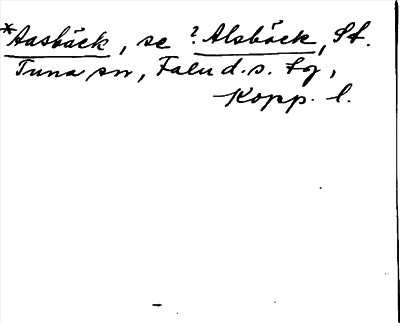 *Aasbäck, se ? Alsbäck, St.
Tuna sn, Falu d.s. fg,
Kopp. l.